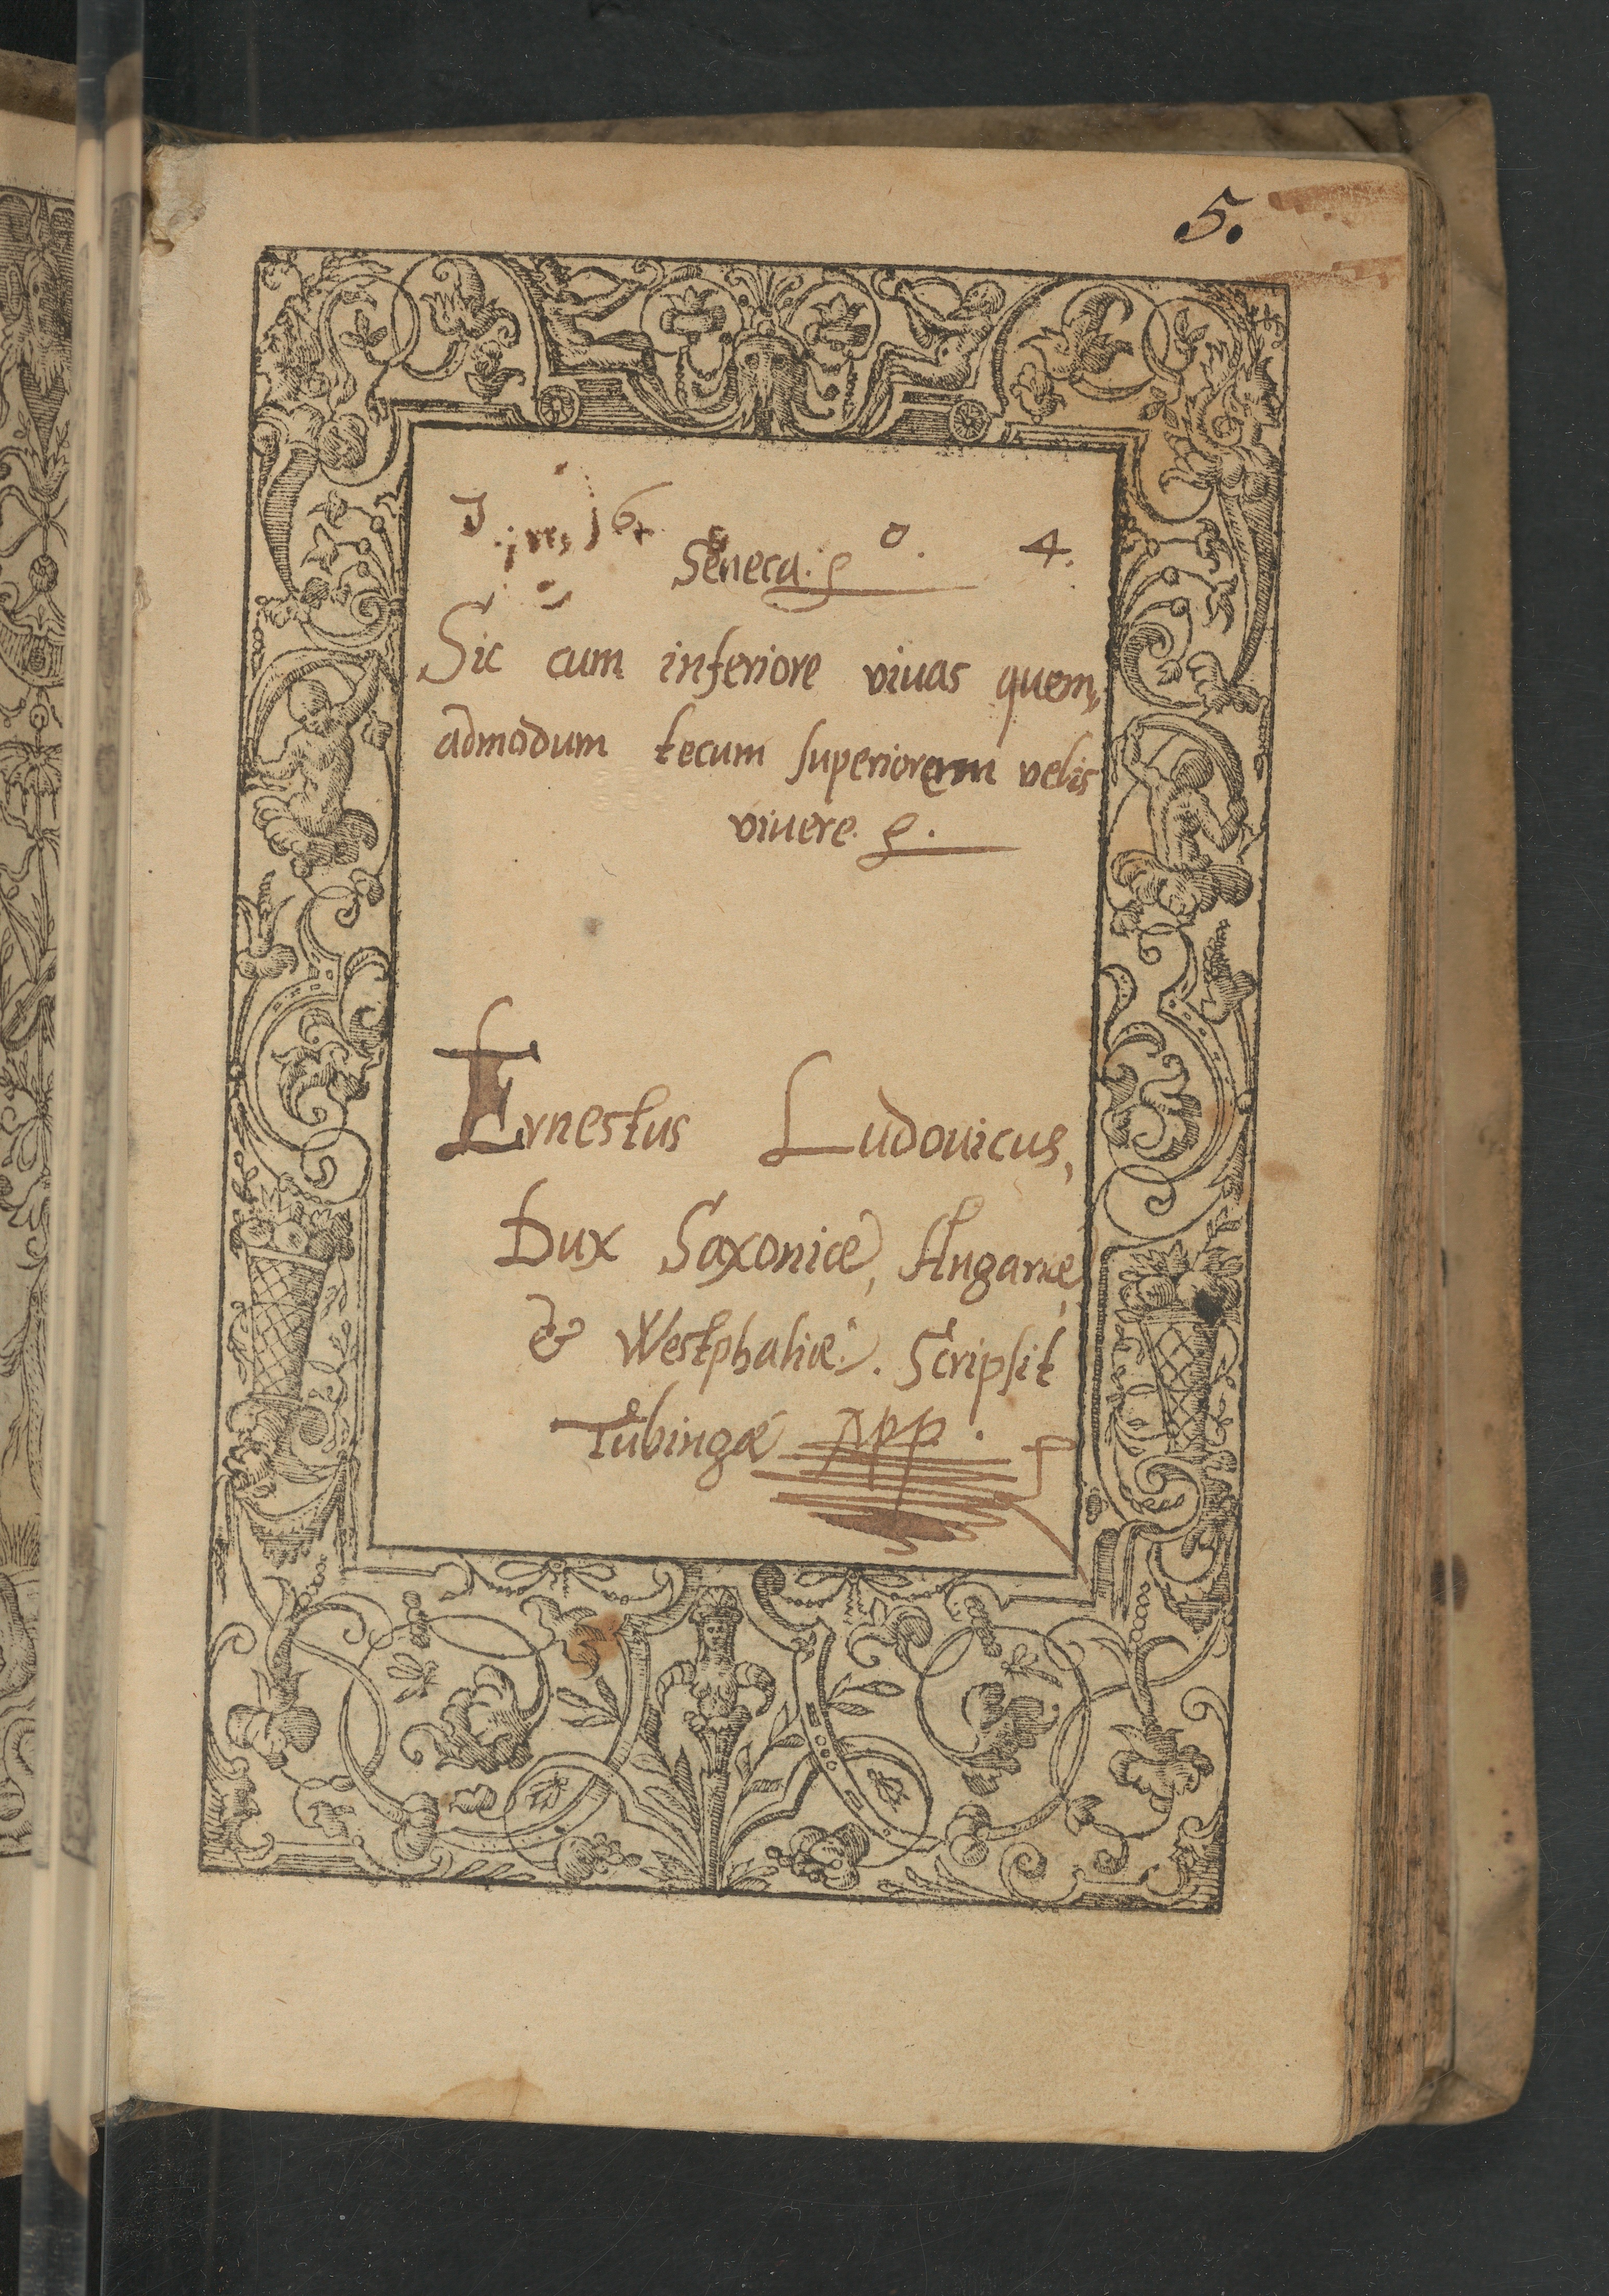 5.
16 0. 4.
Seneca.
Sic cum inferiore viuas quem,
admodum tecum superiorem velis
viuere.
Ernestus Ludovicus,
Dux Saxoniæ, Angariæ,
& Westphaliæ. Scripsit
Tubingæ mpp.